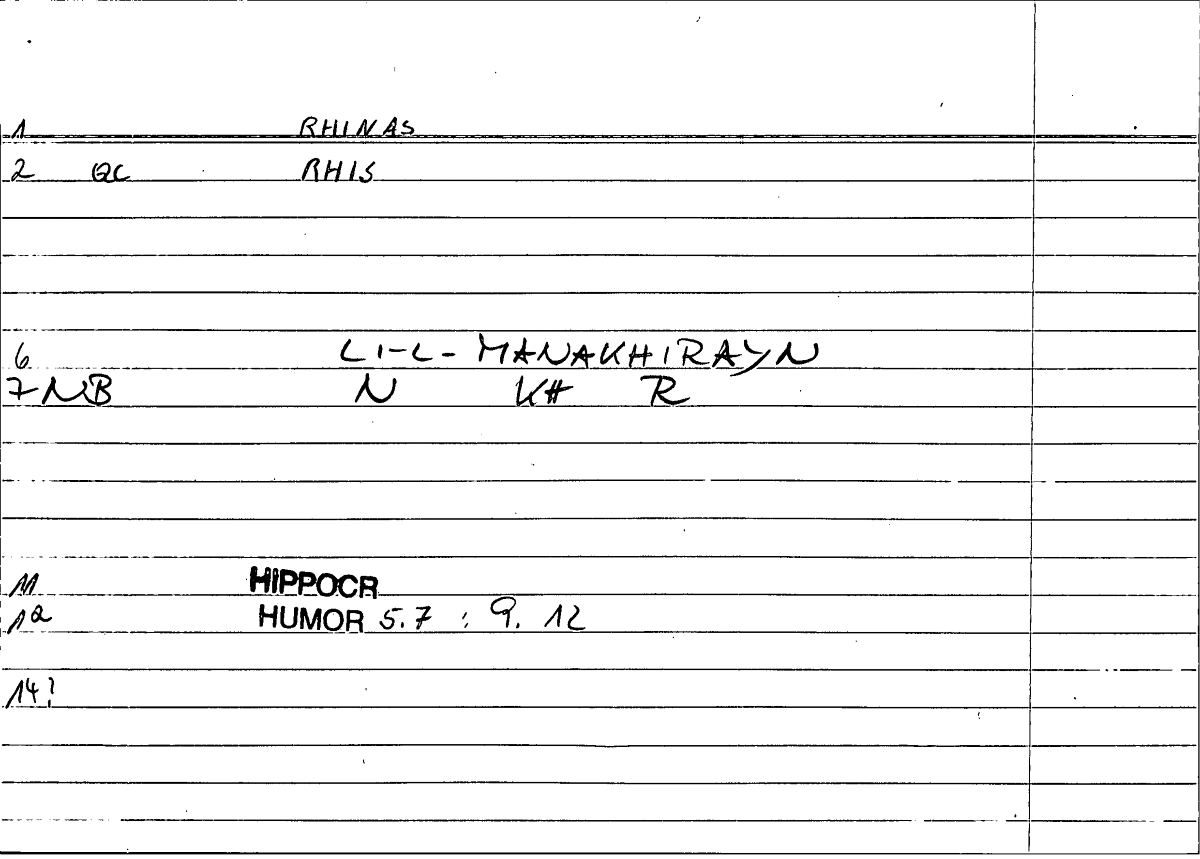 1 RHINAS
2 QC RHIS
6 LI-L-MANAKHIRAYN
7 NB N KH R
11 HIPPOCR
12 HUMOR 5.7 : 9. 12
14?